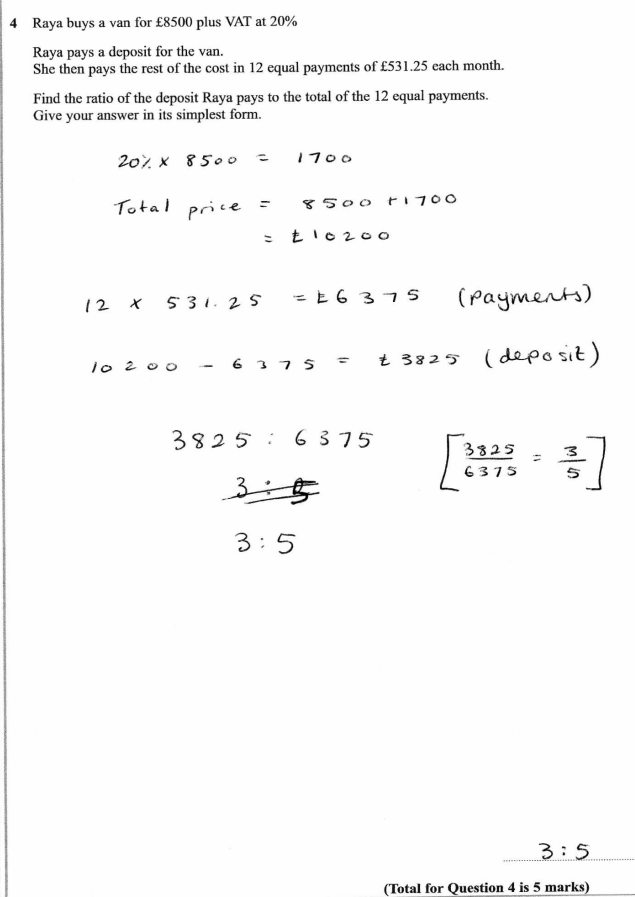 4 Raya buys a van for £8500 plus VAT at 20%
Raya pays a deposit for the van.
She then pays the rest of the cost in 12 equal payments of £531.25 each month.
Find the ratio of the deposit Raya pays to the total of the 12 equal payments.
Give your answer in its simplest form.
20% × 8500 = 1700
Total price = 8500 + 1700
= £10200
12 × 531.25 = £6375 (payments)
10200 - 6375 = £3825 (deposit)
3825 : 6375 [3825/6375 = 3/5]
3 : 5
3 : 5
(Total for Question 4 is 5 marks)